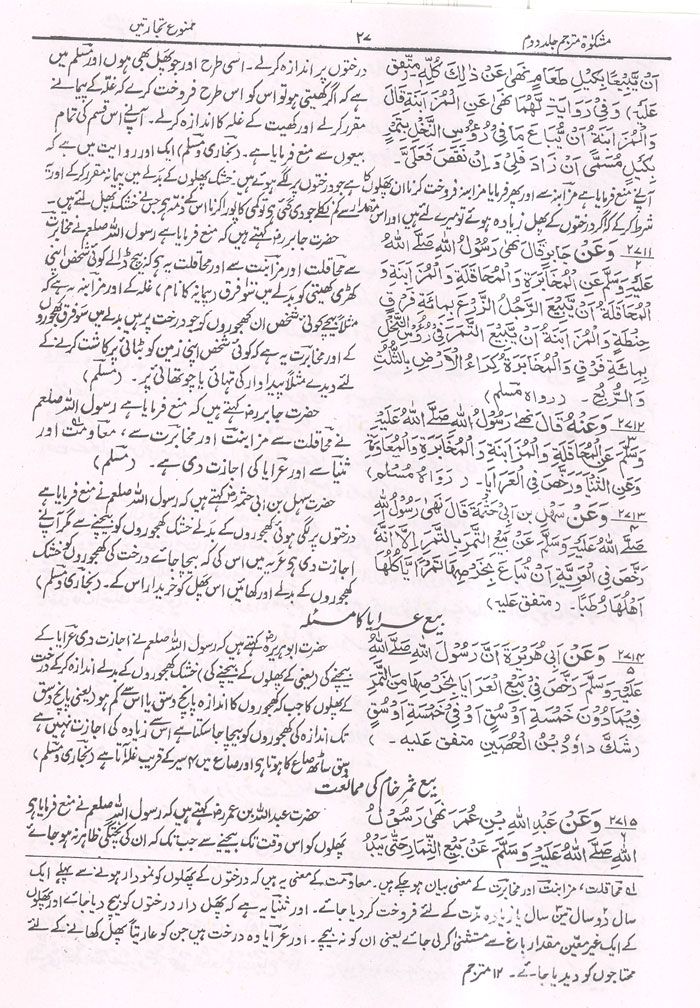 مشکوٰۃ مترجم جلد دوم
۲۷
ممنوع تجارتیں
اَنْ يَّبِيْعَهٗ بِكَيْلِ طَعَامٍ نَهٰى عَنْ ذٰلِكَ كُلِّهٖ۔ متفق
عَلَيْهِ) وَفِيْ رِوَايَةٍ لَّهُمَا نَهٰى عَنِ الْمُزَابَنَةِ قَالَ
وَالْمُزَابَنَةُ اَنْ يُّبَاعَ مَا فِيْ رُءُوْسِ النَّخْلِ بِتَمْرٍ
بِكَيْلٍ مُّسَمًّى اَنْ زَادَ فَلِيْ وَاِنْ نَقَصَ فَعَلَيَّ۔
درختوں پر اندازہ کرلے۔ اسی طرح اور جو پھل بھی ہوں اور مسلم میں
ہے کہ اگر کھیتی ہو تو اس کو اس طرح فروخت کرے کہ غلہ کے پیمانے
مقرر کرلے اور کھیت کے غلہ کا اندازہ کرلے۔ آپ نے اس قسم کی تمام
بیعوں سے منع فرمایا ہے۔ (بخاری مسلم) ایک اور روایت میں ہے کہ
آپ نے منع فرمایا ہے مزابنہ سے اور پھر فرمایا مزابنہ فروخت کرنا ان پھلوں کا ہے جو درختوں پر لگے ہوئے ہیں۔ خشک پھلوں کے بدلے میں پیمانہ مقرر کرکے اور یہ
شرط کرکے کہ اگر درختوں کے پھل زیادہ ہوئے تو میرے لئے ہیں اور اس مقدار سے کم نکلے جو دی گئی ہے تو کمی کا پورا کرنا اس کے ذمہ ہے جس نے خشک پھل لئے ہیں۔
۲۷۱۱
۲
وَعَنْ جَابِرٍ قَالَ نَهٰى رَسُوْلُ اللّٰهِ صَلَّى اللّٰهُ
عَلَيْهِ وَسَلَّمَ عَنِ الْمُخَابَرَةِ وَالْمُحَاقَلَةِ وَالْمُزَابَنَةِ وَ
الْمُحَاقَلَةُ اَنْ يَّبِيْعَ الرَّجُلُ الزَّرْعَ بِمِائَةِ فَرَقٍ
حِنْطَةٍ وَالْمُزَابَنَةُ اَنْ يَّبِيْعَ التَّمْرَ فِيْ رُءُوْسِ النَّخْلِ
بِمِائَةِ فَرَقٍ وَالْمُخَابَرَةُ كِرَاءُ الْاَرْضِ بِالثُّلُثِ
وَالرُّبُعِ۔ (رواہ مسلم)
حضرت جابر رض کہتے ہیں کہ منع فرمایا ہے رسول اللہ صلعم نے مخابرت
سے محاقلت اور مزابنت سے اور محاقلت یہ ہے کہ بیچ ڈالے کوئی شخص اپنی
کھڑی کھیتی کو بدلے میں سو فرق (پیمانہ کا نام) غلہ کے اور مزابنہ یہ ہے کہ
مثلاً بیچے کوئی شخص ان کھجوروں کو جو درخت پر ہیں بدلے میں سو فرق کھجوروں
کے اور مخابرت یہ ہے کہ کوئی شخص اپنی زمین کو بٹائی پر کاشت کرنے کے
لئے دیدے مثلاً پیداوار کی تہائی یا چوتھائی پر۔ (مسلم)
۲۷۱۲
۳
وَعَنْهُ قَالَ نَهٰى رَسُوْلُ اللّٰهِ صَلَّى اللّٰهُ عَلَيْهِ
وَسَلَّمَ عَنِ الْمُحَاقَلَةِ وَالْمُزَابَنَةِ وَالْمُخَابَرَةِ وَالْمُعَاوَمَةِ
وَعَنِ الثُّنْيَا وَرَخَّصَ فِي الْعَرَايَا۔ (رواہ مسلم)
حضرت جابر رض کہتے ہیں کہ منع فرمایا ہے رسول اللہ صلعم
نے محاقلت سے مزابنت اور مخابرت سے، معاومت اور
ثنیا سے اور عرایا کی اجازت دی ہے۔ (مسلم)
۲۷۱۳
۴
وَعَنْ سَهْلِ بْنِ اَبِيْ حَثْمَةَ قَالَ نَهٰى رَسُوْلُ اللّٰهِ
صَلَّى اللّٰهُ عَلَيْهِ وَسَلَّمَ عَنْ بَيْعِ التَّمْرِ بِالتَّمْرِ اِلَّا اَنَّهٗ
رَخَّصَ فِي الْعَرِيَّةِ اَنْ تُبَاعَ بِخَرْصِهَا تَمْرًا يَّاْكُلُهَا
اَهْلُهَا رُطَبًا۔ (متفق علیہ)
حضرت سہل بن ابی حثمہ رض کہتے ہیں کہ رسول اللہ صلعم نے منع فرمایا ہے
درختوں پر لگی ہوئی کھجوروں کے بدلے خشک کھجوروں کو بیچنے سے مگر آپ نے
اجازت دی ہے عریہ میں اس کی کہ بیچا جائے درخت کی کھجوروں کو خشک
کھجوروں کے بدلے اور کھائیں اس پھل کو خریدار اس کے۔ (بخاری و مسلم)
بیع عرایا کا مسئلہ
۲۷۱۴
۵
وَعَنْ اَبِيْ هُرَيْرَةَ اَنَّ رَسُوْلَ اللّٰهِ صَلَّى اللّٰهُ
عَلَيْهِ وَسَلَّمَ رَخَّصَ فِيْ بَيْعِ الْعَرَايَا بِخَرْصِهَا مِنَ التَّمْرِ
فِيْمَا دُوْنَ خَمْسَةِ اَوْسُقٍ اَوْ فِيْ خَمْسَةِ اَوْسُقٍ
(شَكَّ دَاوُدُ بْنُ الْحُصَيْنِ متفق علیہ۔)
حضرت ابوہریرہ رض کہتے ہیں کہ رسول اللہ صلعم نے اجازت دی عرایا کے
بیچنے کی (یعنی کے پھلوں کے بیچنے کی) خشک کھجوروں کے بدلے اندازہ کرکے درخت
کے پھلوں کا جب کہ کھجوروں کا اندازہ پانچ وسق یا اس سے کم ہو (یعنی پانچ وسق
تک اندازہ کی کھجوروں کو بیچا جا سکتا ہے اس سے زیادہ کی اجازت نہیں ہے
وسق ساٹھ صاع کا ہوتا ہے اور صاع میں ۴ سیر کے قریب غلہ آتا ہے (بخاری و مسلم)
بیع ثمر خام کی ممانعت
۲۷۱۵
۶
وَعَنْ عَبْدِ اللّٰهِ بْنِ عُمَرَ نَهٰى رَسُوْلُ
اللّٰهِ صَلَّى اللّٰهُ عَلَيْهِ وَسَلَّمَ عَنْ بَيْعِ الثِّمَارِ حَتّٰى يَبْدُ
حضرت عبداللہ بن عمر رض کہتے ہیں کہ رسول اللہ صلعم نے منع فرمایا ہے
پھلوں کو اس وقت تک بیچنے سے جب تک کہ ان کی پختگی ظاہر نہ ہو جائے
لہ محاقلت، مزابنت اور مخابرت کے معنی بیان ہو چکے ہیں۔ معاومت کے معنی یہ ہیں کہ درختوں کے پھلوں کو نمودار ہونے سے پہلے ایک
سال دو سال تین سال یا زیادہ مدت کے لئے فروخت کردیا جائے۔ اور ثنیا یہ ہے کہ پھل دار درختوں کو بیچ دیا جائے اور پھلوں
کے ایک غیر معین مقدار باغ سے مستثنیٰ کرلی جائے یعنی ان کو نہ بیچے۔ اور عرایا وہ درخت ہیں جن کو عاریتاً پھل کھانے کے لئے
محتاجوں کو دیدیا جائے۔ ۱۲ مترجم